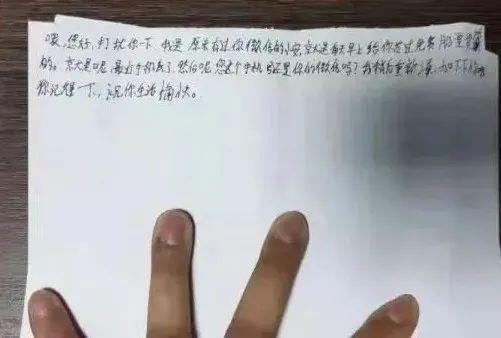 喂,您好,打扰你一下 我是 原来有过你微信的小安,就是每天早上给你发过免费股票
的。就是呢 最近手机丢了,然后呢 您这个手机 还是你的微信吗?我稍后重新 加下
你记得一下,祝你生活愉快。